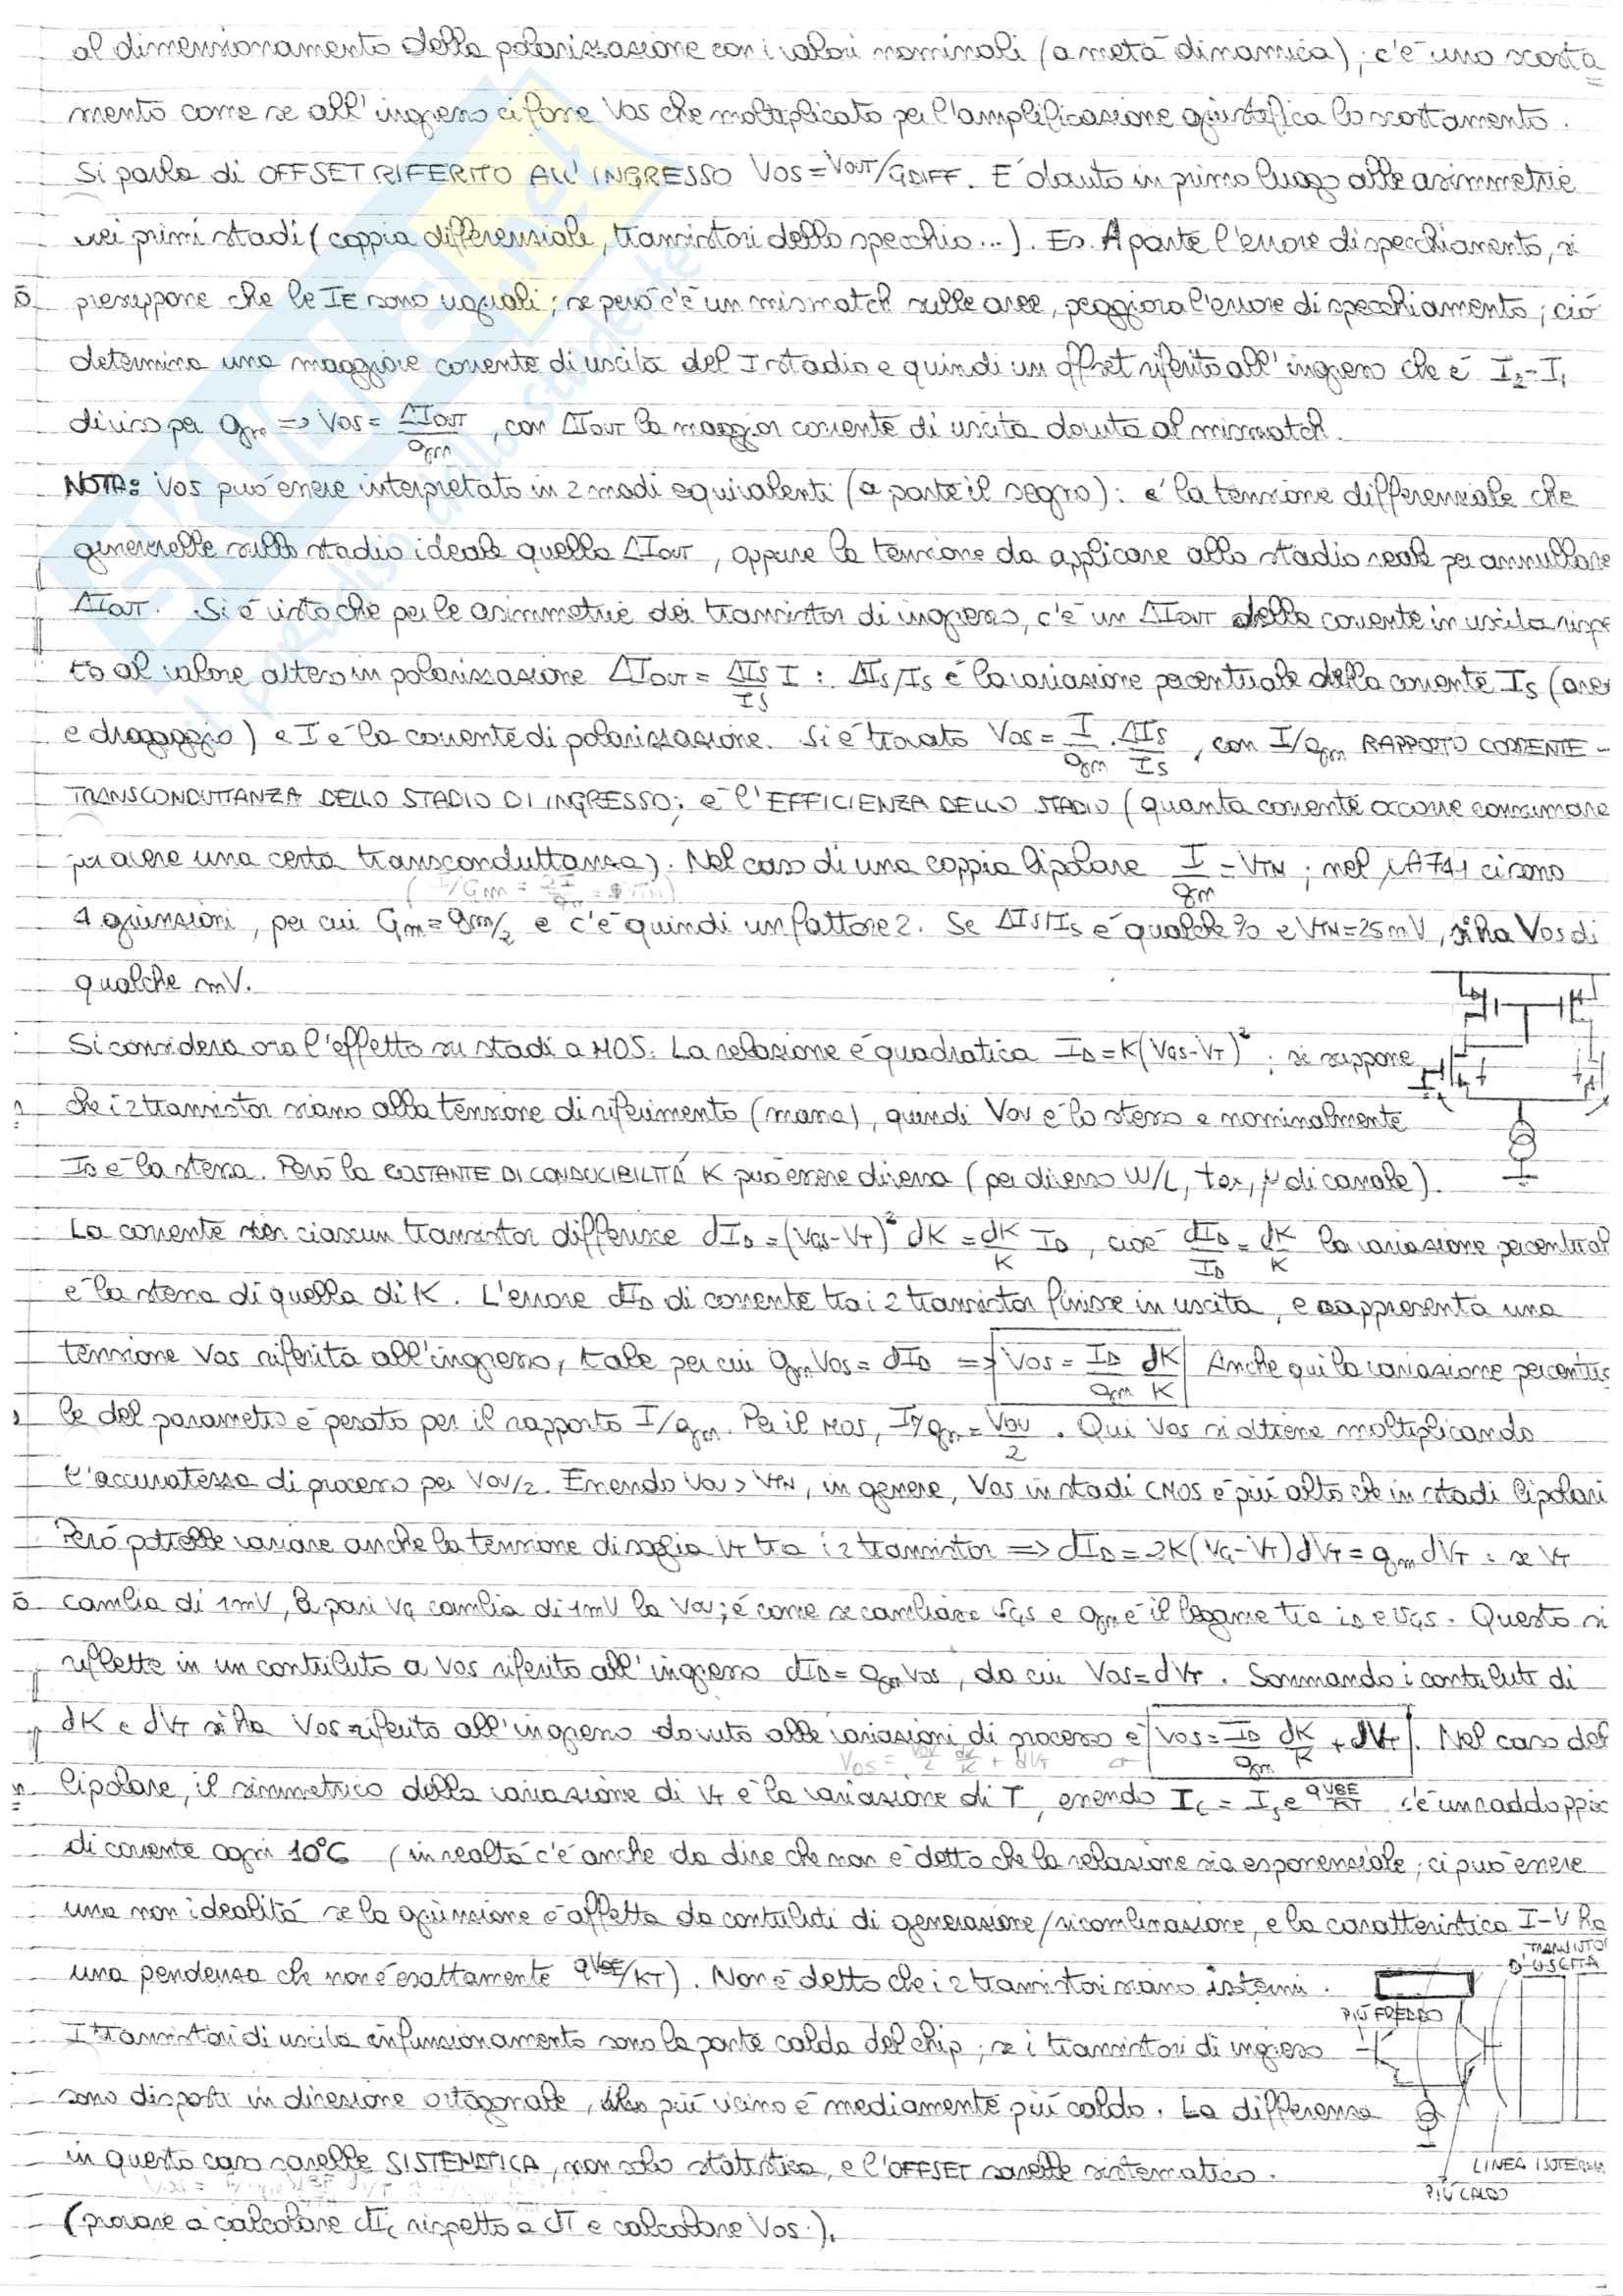 al dimensionamento della polarizzazione con i valori nominali (a metà dinamica), c'è uno scosta
mento come se all'ingresso ci fosse Vos che moltiplicato per l'amplificazione giustifica lo scostamento.
Si parla di OFFSET RIFERITO ALL'INGRESSO Vos = Vout/GDIFF. È dovuto in primo luogo alle asimmetrie
nei primi stadi (coppia differenziale, transistori dello specchio...). Es. A parte l'errore di specchiamento, si
presuppone che le IE sono uguali; se però c'è un mismatch sulle aree, peggiora l'errore di specchiamento; ciò
determina una maggiore corrente di uscita del I stadio e quindi un offset riferito all'ingresso che è I2-I1
diviso per gm => Vos = ΔIout/gm, con ΔIout la maggior corrente di uscita dovuta al mismatch.
NOTA: Vos può essere interpretato in 2 modi equivalenti (a parte il segno): è la tensione differenziale che
genererebbe sullo stadio ideale quella ΔIout, oppure la tensione da applicare allo stadio reale per annullare
ΔIout. Si è visto che per le asimmetrie dei transistor di ingresso, c'è un ΔIout della corrente in uscita rispe
to al valore atteso in polarizzazione ΔIout = ΔIs/Is I : ΔIs/Is è la variazione percentuale della corrente Is (aree
e drogaggio) e I è la corrente di polarizzazione. Si è trovato Vos = I/gm · ΔIs/Is, con I/gm RAPPORTO CORRENTE-
TRANSCONDUTTANZA DELLO STADIO DI INGRESSO; è l'EFFICIENZA DELLO STADIO (quanta corrente occorre consumare
per avere una certa transconduttanza). Nel caso di una coppia bipolare I/gm = VTH; nel μA741 ci sono
4 giunzioni, per cui Gm = gm/2 e c'è quindi un fattore 2. Se ΔIs/Is è qualche % e VTH=25mV, si ha Vos di
qualche mV.
Si considera ora l'effetto su stadi a MOS. La relazione è quadratica ID = K(VGS-VT)²; si suppone
che i 2 transistor siano alla tensione di riferimento (massa), quindi Vov è lo stesso e nominalmente
ID è la stessa. Però la COSTANTE DI CONDUCIBILITÁ K può essere diversa (per diverso W/L, tox, μ di canale).
La corrente in ciascun transistor differisce dID = (VGS-VT)² dK = dK/K ID, cioè dID/ID = dK/K la variazione percentual
è la stessa di quella di K. L'errore dID di corrente tra i 2 transistor finisce in uscita, e rappresenta una
tensione Vos riferita all'ingresso, tale per cui gm Vos = dID => Vos = ID/gm dK/K Anche qui la variazione percentua
le del parametro è pesata per il rapporto I/gm. Per il MOS, I/gm = Vov/2. Qui Vos si ottiene moltiplicando
l'accuratezza di processo per Vov/2. Essendo Vov > VTH, in genere, Vos in stadi CMOS è più alto che in stadi bipolari
Però potrebbe variare anche la tensione di soglia VT tra i 2 transistor => dID = 2K(VG-VT)dVT = gm dVT : se VT
cambia di 1mV, a pari VG cambia di 1mV la Vov; è come se cambiasse vGS e gm è il legame tra iD e vGS. Questo si
riflette in un contributo a Vos riferito all'ingresso dID = gm Vos, da cui Vos = dVT. Sommando i contributi di
dK e dVT si ha Vos riferito all'ingresso dovuto alle variazioni di processo è Vos = ID/gm dK/K + dVT. Nel caso del
Vos = Vov/2 dK/K + dVT
bipolare, il simmetrico della variazione di VT è la variazione di T, essendo Ic = Is e^(qVBE/KT) c'è un raddoppio
di corrente ogni 10°C (in realtà c'è anche da dire che non è detto che la relazione sia esponenziale; ci può essere
una non idealità se la giunzione è affetta da contributi di generazione/ricombinazione, e la caratteristica I-V ha
una pendenza che non è esattamente qVBE/KT). Non è detto che i 2 transistori siano isotermi.
I transistori di uscita in funzionamento sono la parte calda del chip; se i transistori di ingresso
sono disposti in direzione ortogonale, più vicino è mediamente più caldo. La differenza
in questo caso sarebbe SISTEMATICA, non solo statistica, e l'OFFSET sarebbe sistematico.
(provare a calcolare dIc rispetto a dT e calcolare Vos.).
TRANSISTOR
D'USCITA
PIÙ FREDDO
LINEA ISOTERMA
PIÙ CALDO